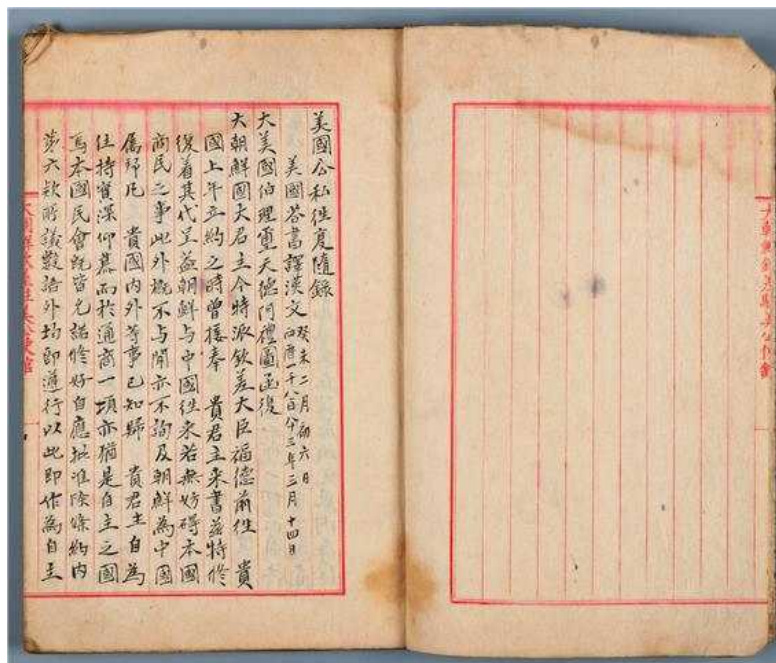 美國公私往復隨錄
美國答書譯漢文 癸未二月初六日
西曆一千八百八十三年三月十四日
大美國伯理璽天德阿禮圖函復
大朝鮮國大君主今特派欽差大臣福德前往 貴
國上年立約之時曾接奉 貴君主來書茲特修
復着其代呈益朝鮮与中國往来若無妨碍本國
商民之事此外概不与聞亦不詢及朝鮮為中國
屬邦凡 貴國內外等事已知歸 貴君主自為
住持實深仰慕而於通商一項亦猶是自主之國
焉本國民會既皆允諾修好自應批准除條約內
第六欵所議數語外均即遵行以此即作為自主